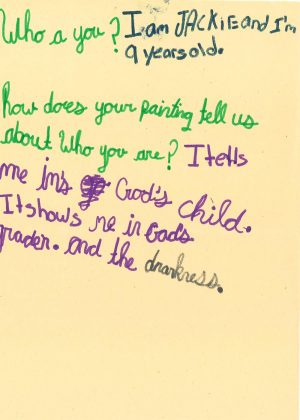 Who a you? I am JACKiE and I'm
9 years old.
how does your painting tell us
about Who you are? I tells
me im's God's child.
It shows me in God's
and the drarkness.